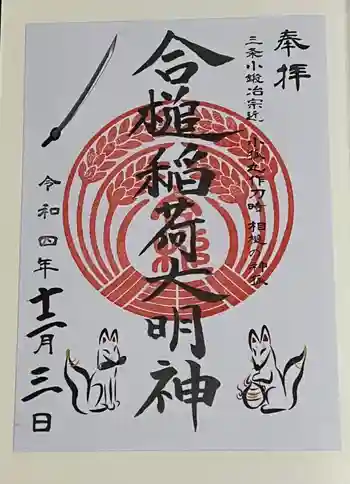 奉拝
三条小鍛冶宗近
小狐丸作刀時 相槌の神狐
合槌稲荷大明神
令和四年
十一月三日